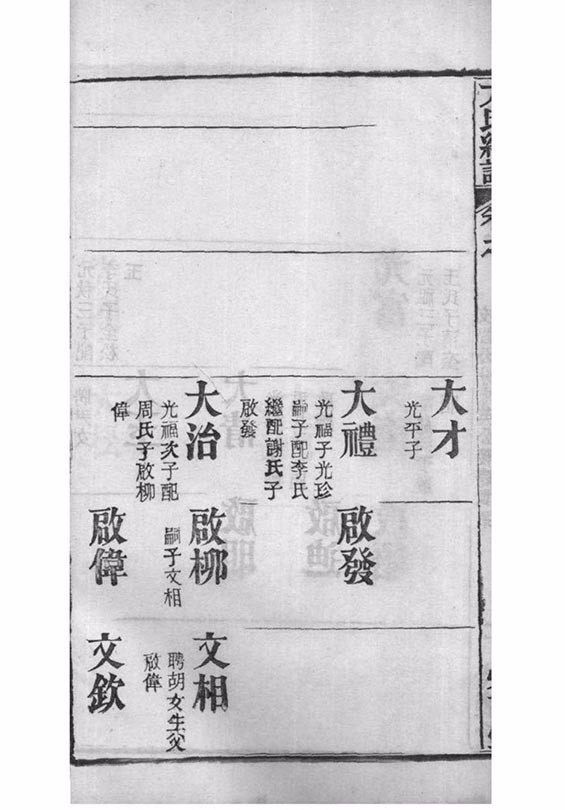 氏總譜
大才
光平子
大禮
光福子光珍
嗣子配李氏
繼配謝氏子
啟發
大治
光福次子配
周氏子啟柳
偉
啟發
啟柳
嗣子文相
啟偉
文相
聘胡女生父
啟偉
文欽